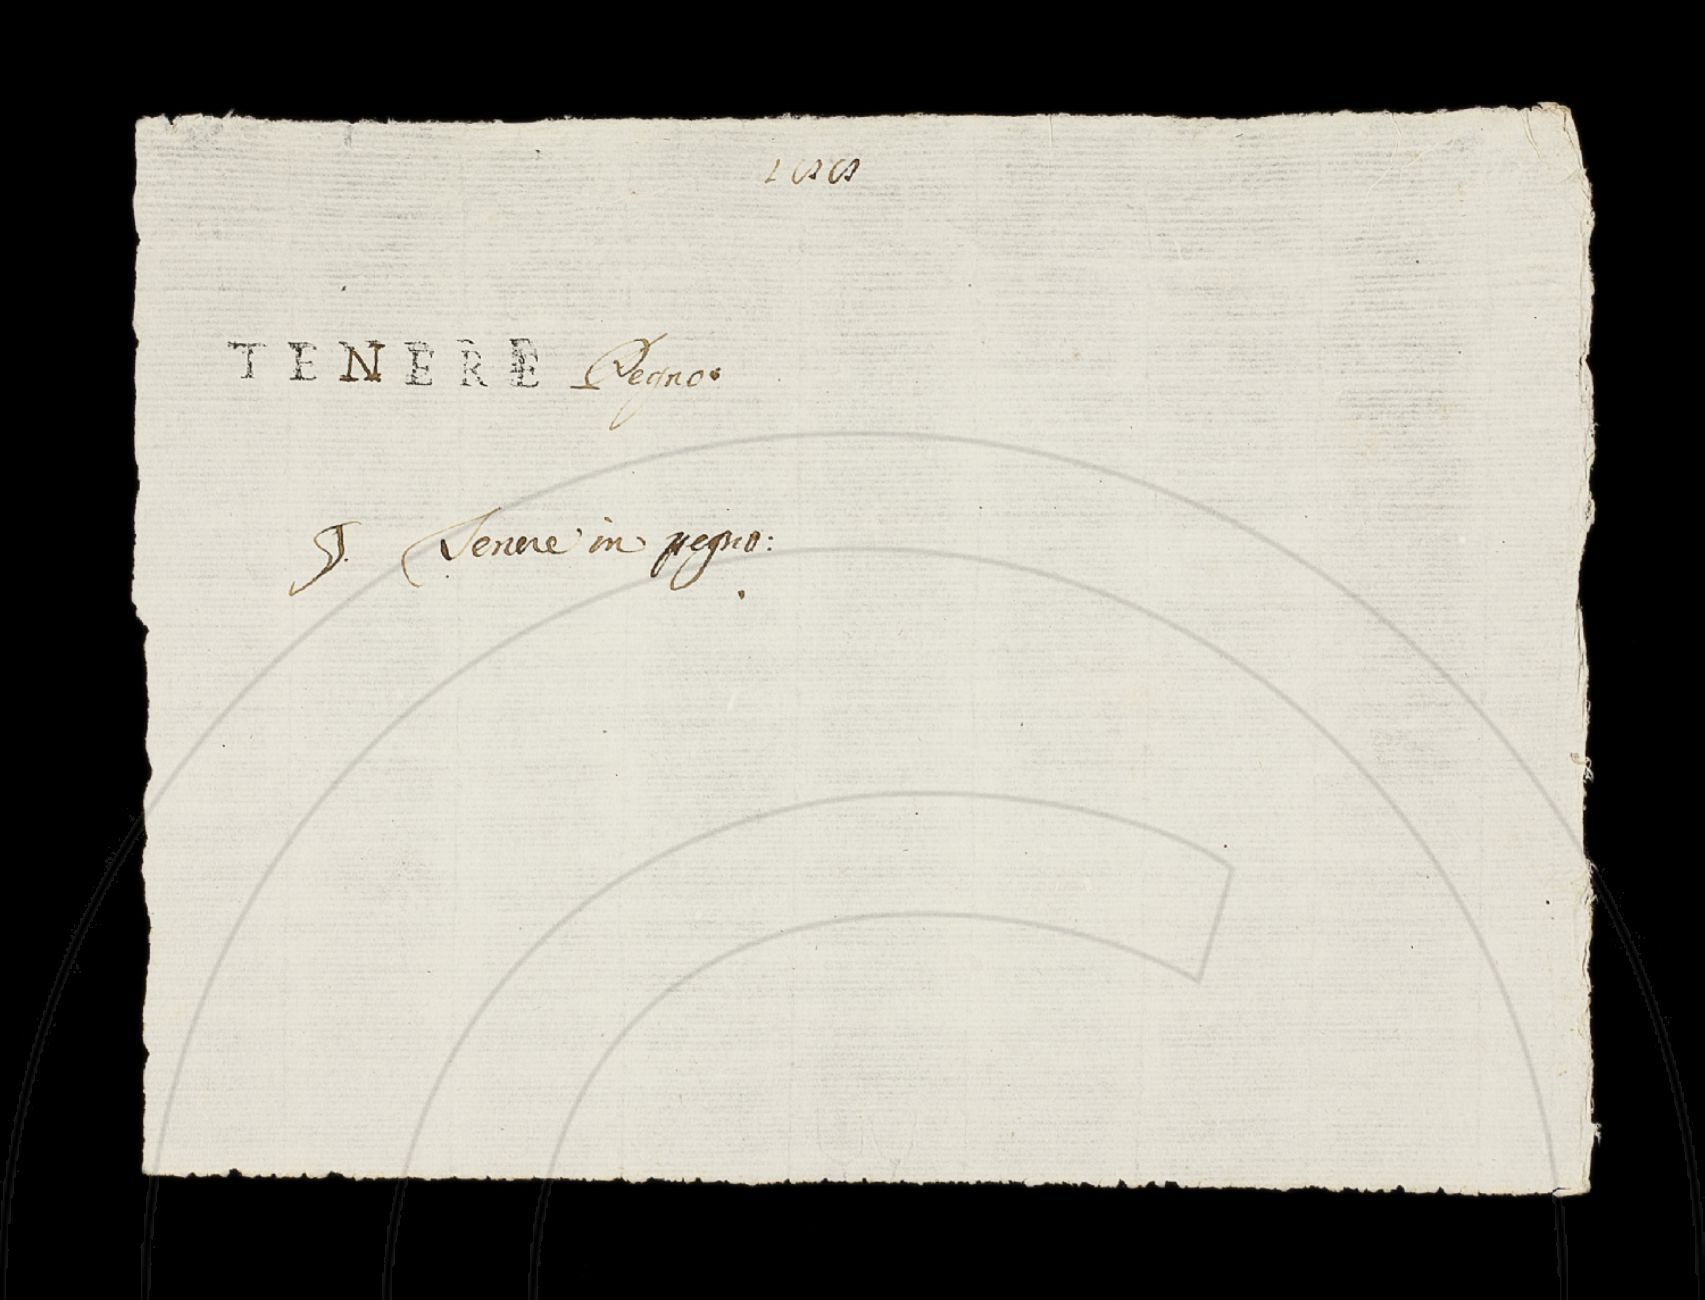 TENERE Pegno.
J. Tenere in pegno: